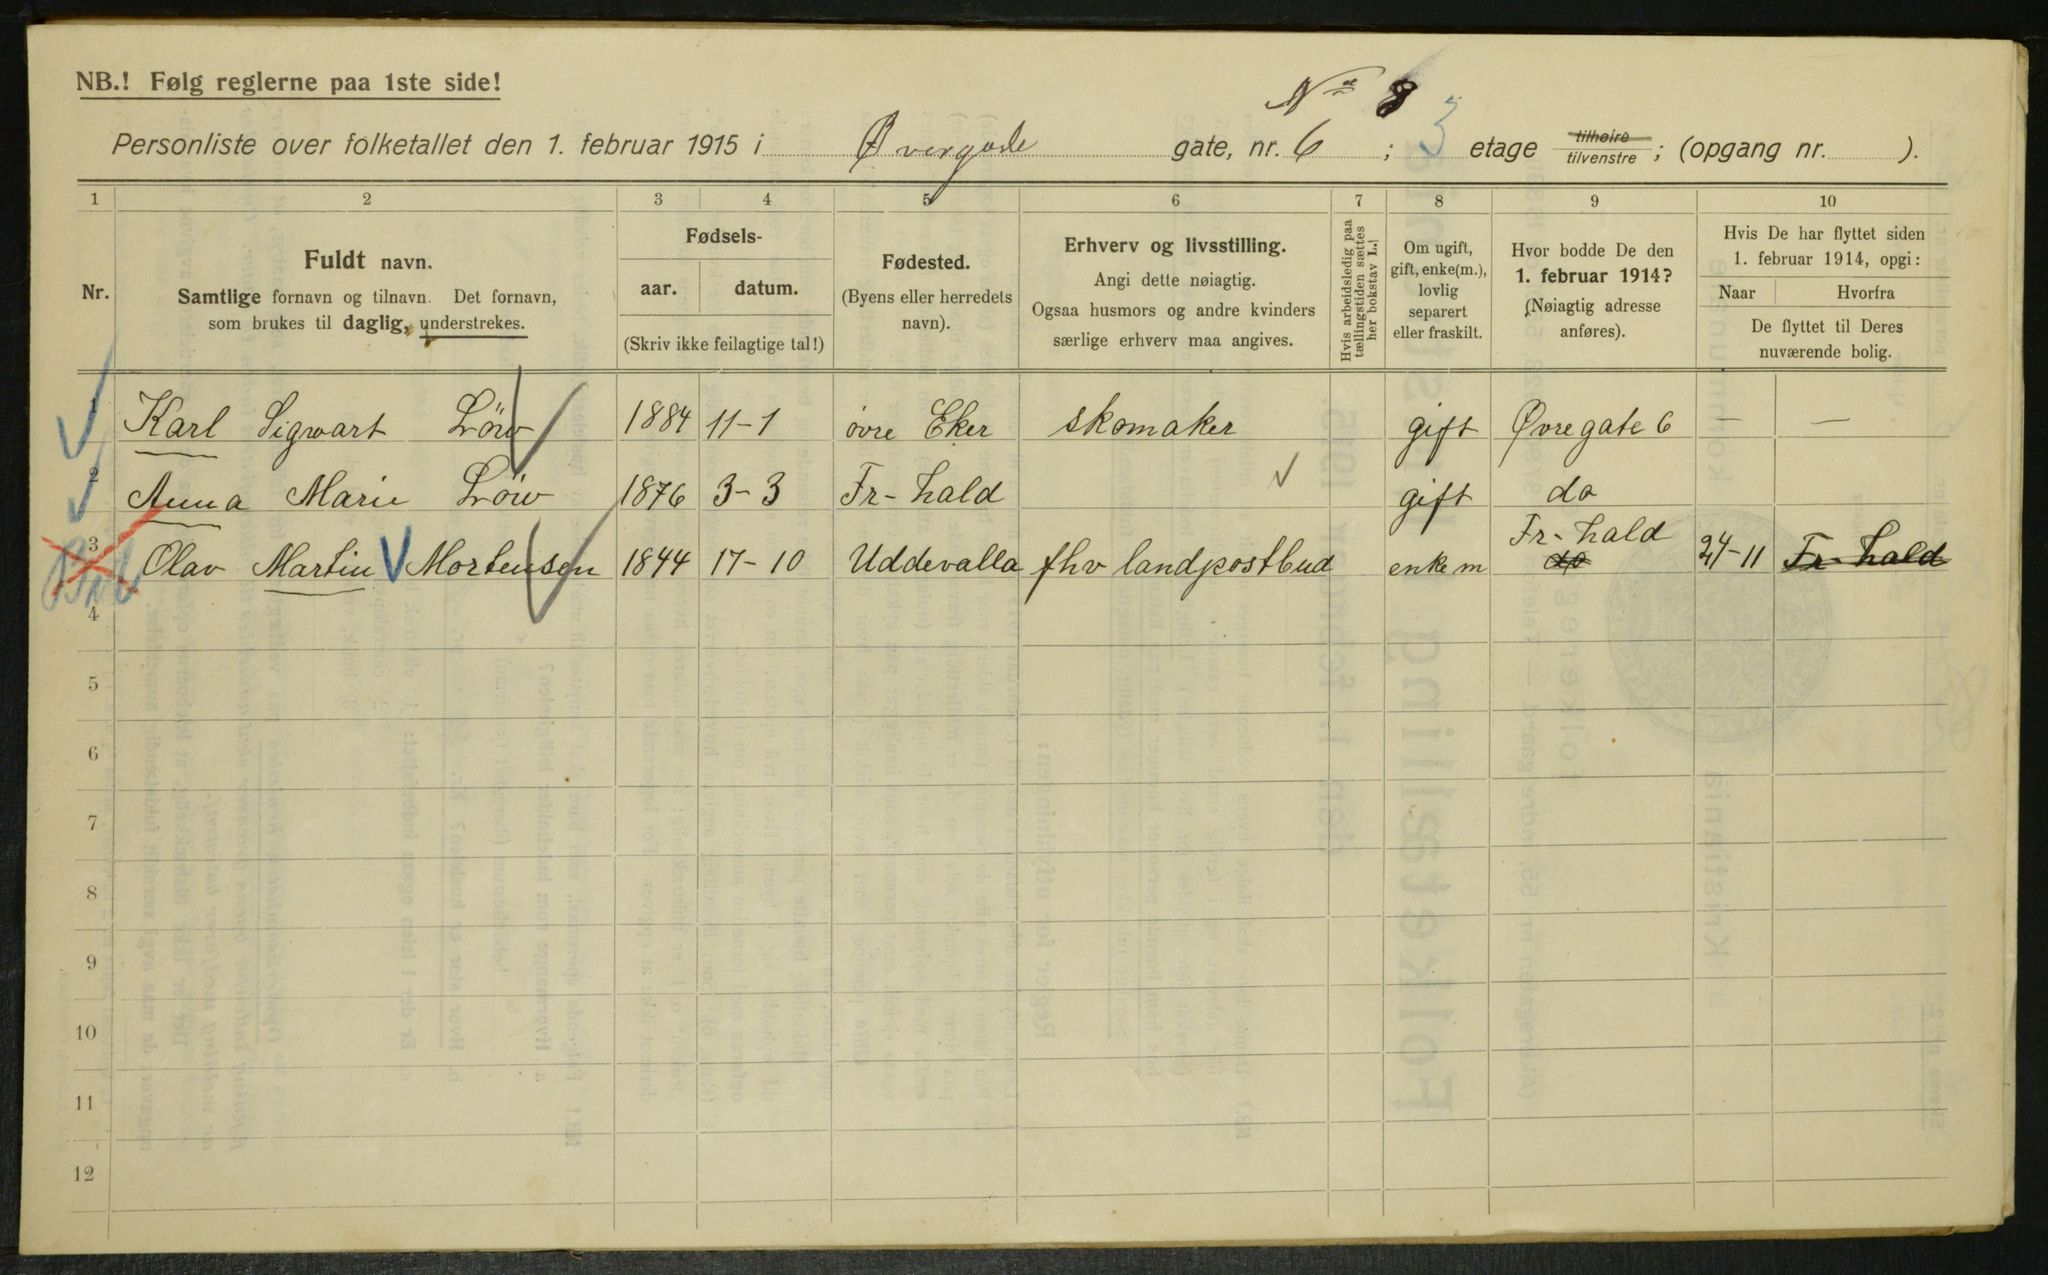 NB.! Følg reglerne paa 1ste side!
No 8
Personliste over folketallet den 1. februar 1915 i Øvregade gate, nr. 6 ; 3 etage tilhøire tilvenstre ; (opgang nr. ).
1 2 3 4 5 6 7 8 9 10
Nr.
Fuldt navn.
Samtlige fornavn og tilnavn. Det fornavn,
som brukes til daglig, understrekes.
Fødsels-
aar. datum.
(Skriv ikke feilagtige tal!)
Fødested.
(Byens eller herredets
navn).
Erhverv og livsstilling.
Angi dette nøiagtig.
Ogsaa husmors og andre kvinders
særlige erhverv maa angives.
Hvis arbeidsledig paa
tællingstiden sættes
her bokstav L.!
Om ugift,
gift, enke(m.),
lovlig
separert
eller fraskilt.
Hvor bodde De den
1. februar 1914?
(Nøiagtig adresse
anføres).
Hvis De har flyttet siden
1. februar 1914, opgi:
Naar Hvorfra
De flyttet til Deres
nuværende bolig.
1 Karl Sigwart Löw 1884 11-1 övre Eker skomaker gift Øvregate 6 — —
2 Anna Marie Löw 1876 3-3 Fr-hald gift do
3 Olav Martin Mortensen 1844 17-10 Uddevalla fhv landpostbud enkem Fr-hald do 24-11 Fr-hald
4
5
6
7
8
9
10
11
12